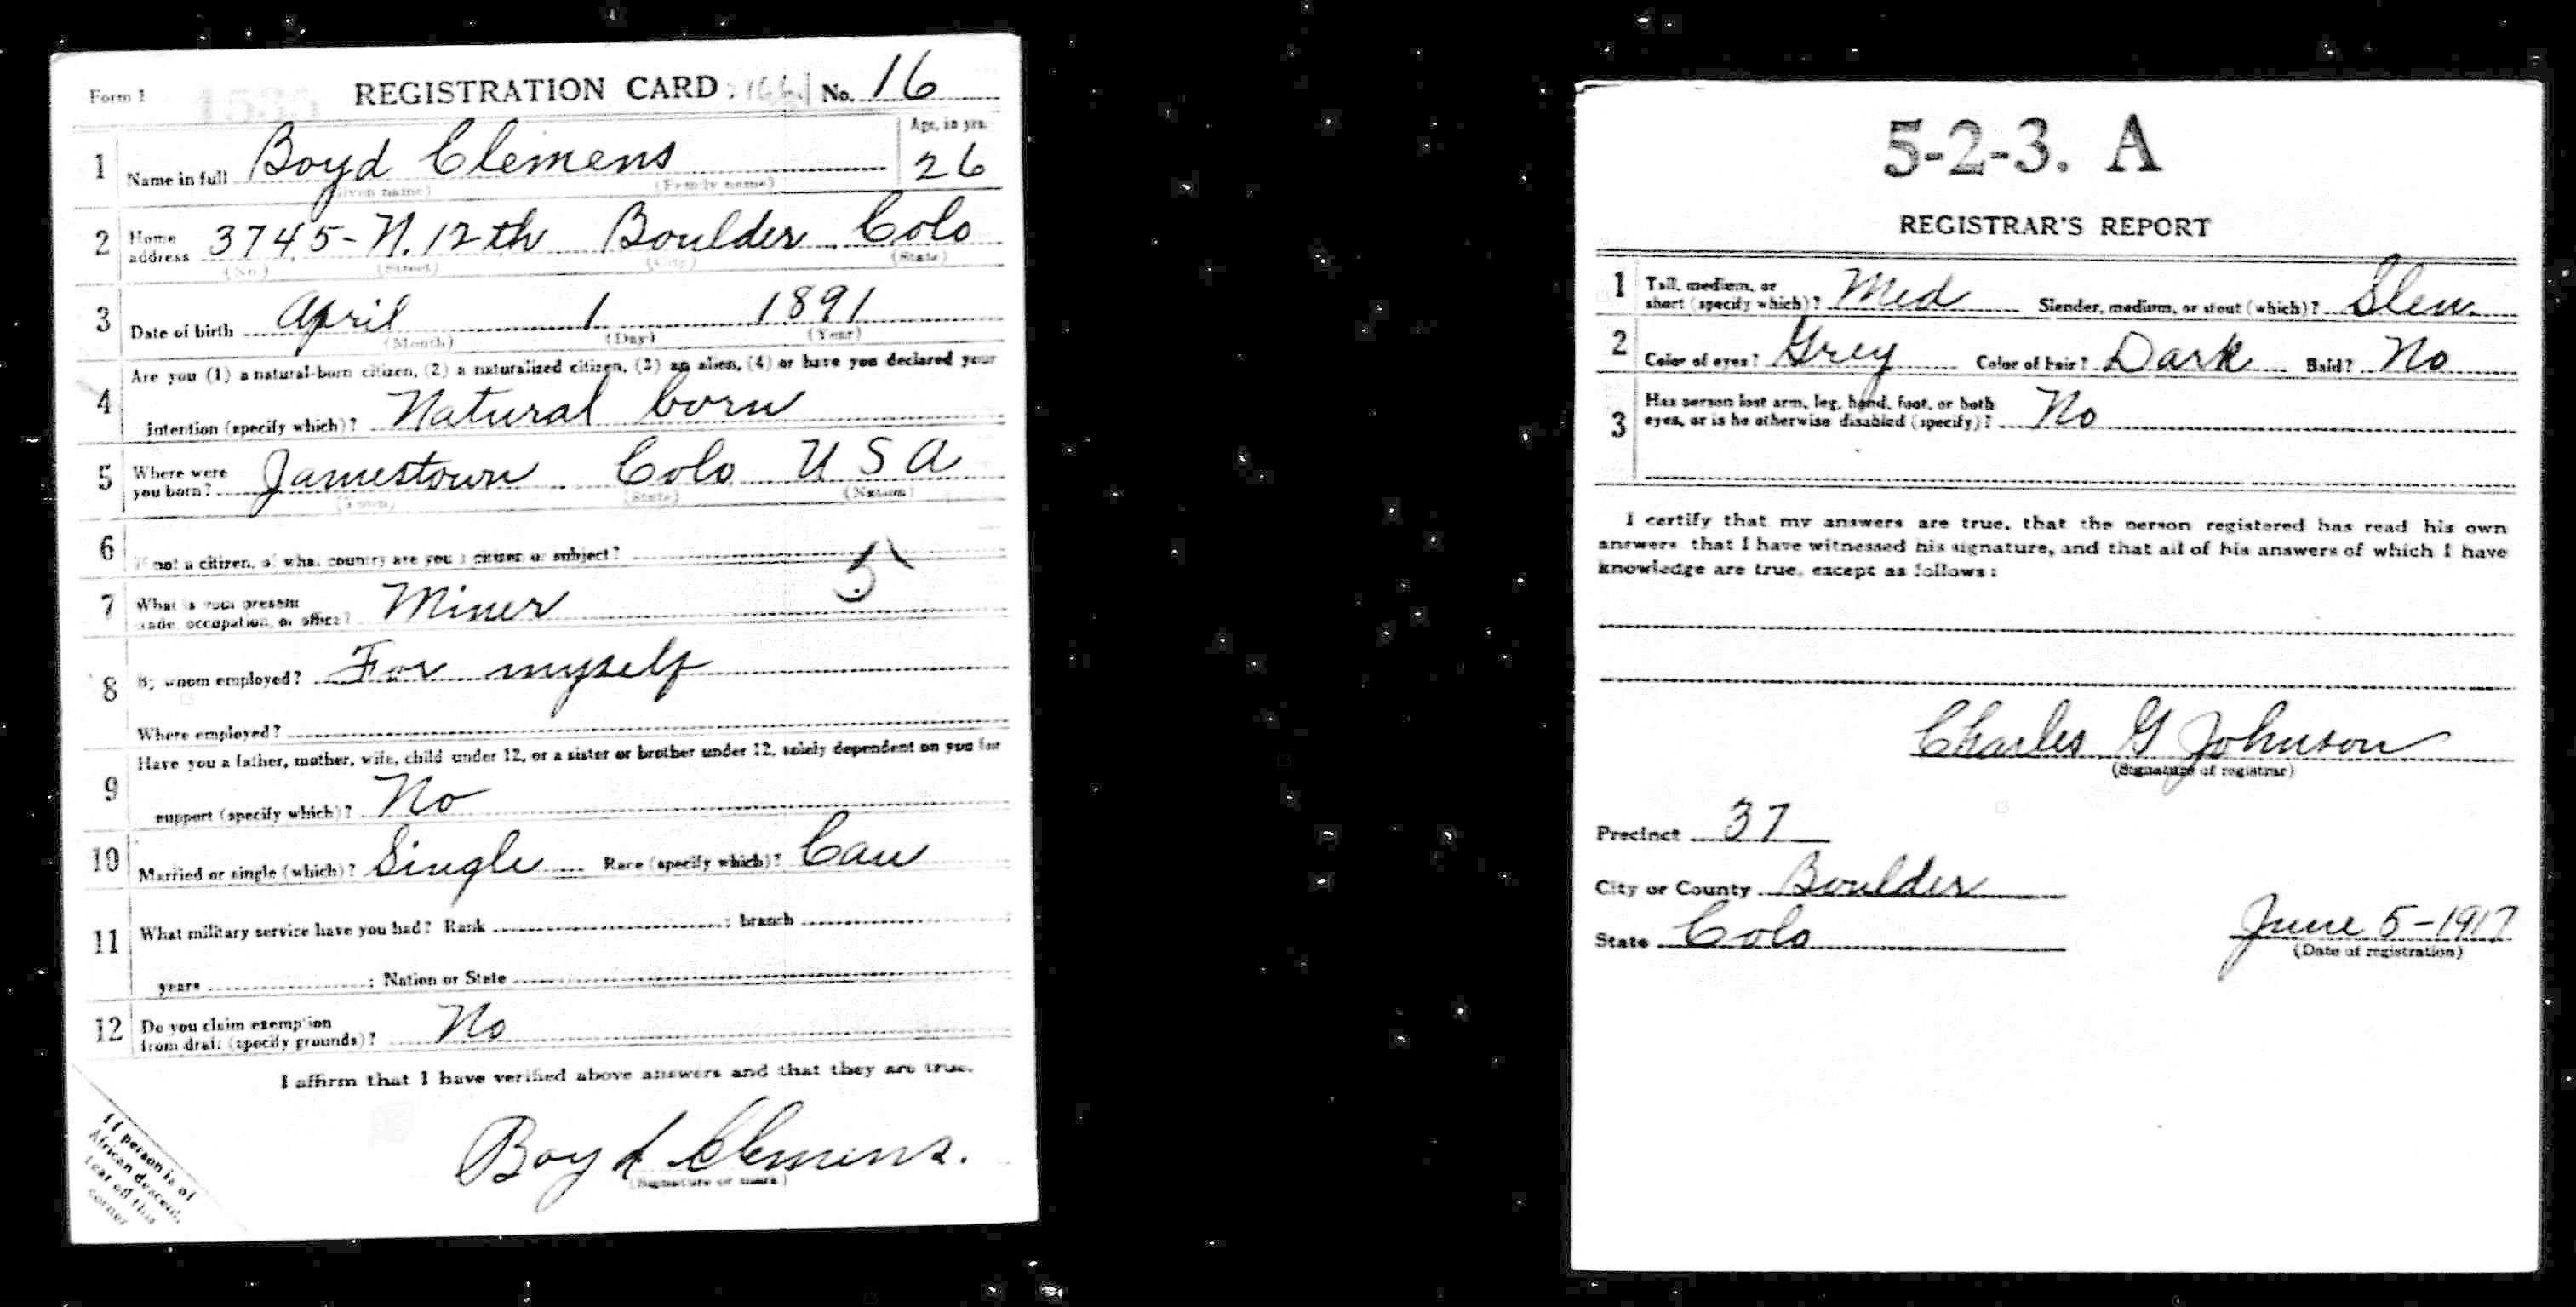 Form 1 REGISTRATION CARD No. 16
1 Name in full Boyd Clemens Age, in yrs. 26
(Given name) (Family name)
2 Home address 3745-N. 12th Boulder Colo
(No.) (Street) (City) (State)
3 Date of birth April 1 1891
(Month) (Day) (Year)
4 Are you (1) a natural-born citizen, (2) a naturalized citizen, (3) an alien, (4) or have you declared your
intention (specify which)? Natural born
5 Where were you born? Jamestown Colo USA
(Town) (State) (Nation)
6 If not a citizen, of what country are you a citizen or subject?
5
7 What is your present trade, occupation, or office? Miner
8 By whom employed? For myself
Where employed?
9 Have you a father, mother, wife, child under 12, or a sister or brother under 12, solely dependent on you for
support (specify which)? No
10 Married or single (which)? Single Race (specify which)? Cau
11 What military service have you had? Rank ; branch ;
years ; Nation or State
12 Do you claim exemption from draft (specify grounds)? No
I affirm that I have verified above answers and that they are true.
Boyd Clemens.
(Signature or mark)
If person is of
African descent,
tear off this
corner
5-2-3. A
REGISTRAR'S REPORT
1 Tall, medium, or short (specify which)? Med Slender, medium, or stout (which)? Slen.
2 Color of eyes? Grey Color of hair? Dark Bald? No
3 Has person lost arm, leg, hand, foot, or both
eyes, or is he otherwise disabled (specify)? No
I certify that my answers are true, that the person registered has read his own
answers, that I have witnessed his signature, and that all of his answers of which I have
knowledge are true, except as follows:
Charles G Johnson
(Signature of registrar)
Precinct 37
City or County Boulder
State Colo June 5-1917
(Date of registration)